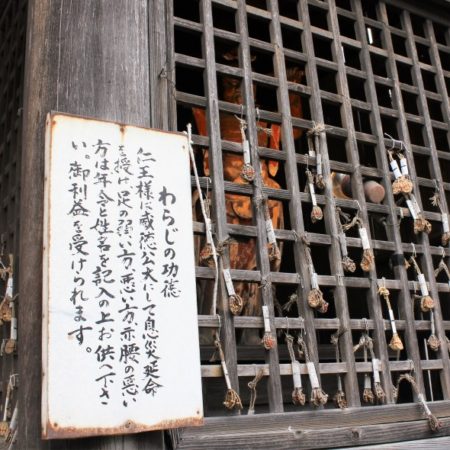 わらじの功徳
仁王様に威徳公大にして息災延命
を授け足の弱い方、悪い方、亦腰の悪い
方は年令と姓名を記入の上お供へ下さ
い。御利益を受けられます。